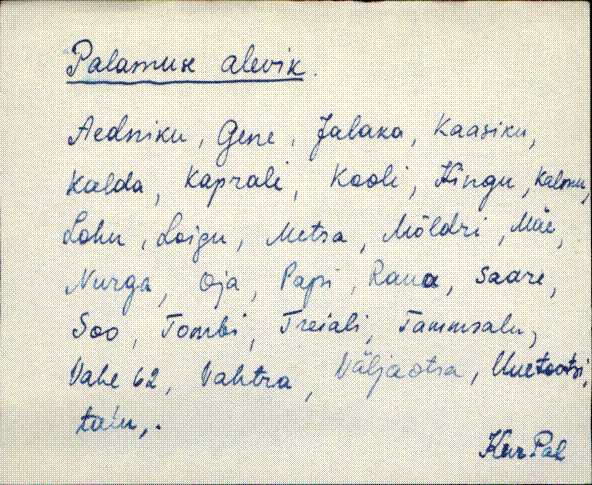 Palamuse alevik.
Aedniku, Gene, Jalaka, Kaasiku,
Kalda, Kaprali, Kooli, Kingu, Kalmu,
Lohu, Loigu, Metsa, Möldri, Mäe,
Nurga, Oja, Papi, Raua, Saare,
Soo, Tombi, Treiali, Tammsalu,
Vahe 62, Vahtra, Väljaotsa, Uuetootsi,
talu,.
Kur Pal